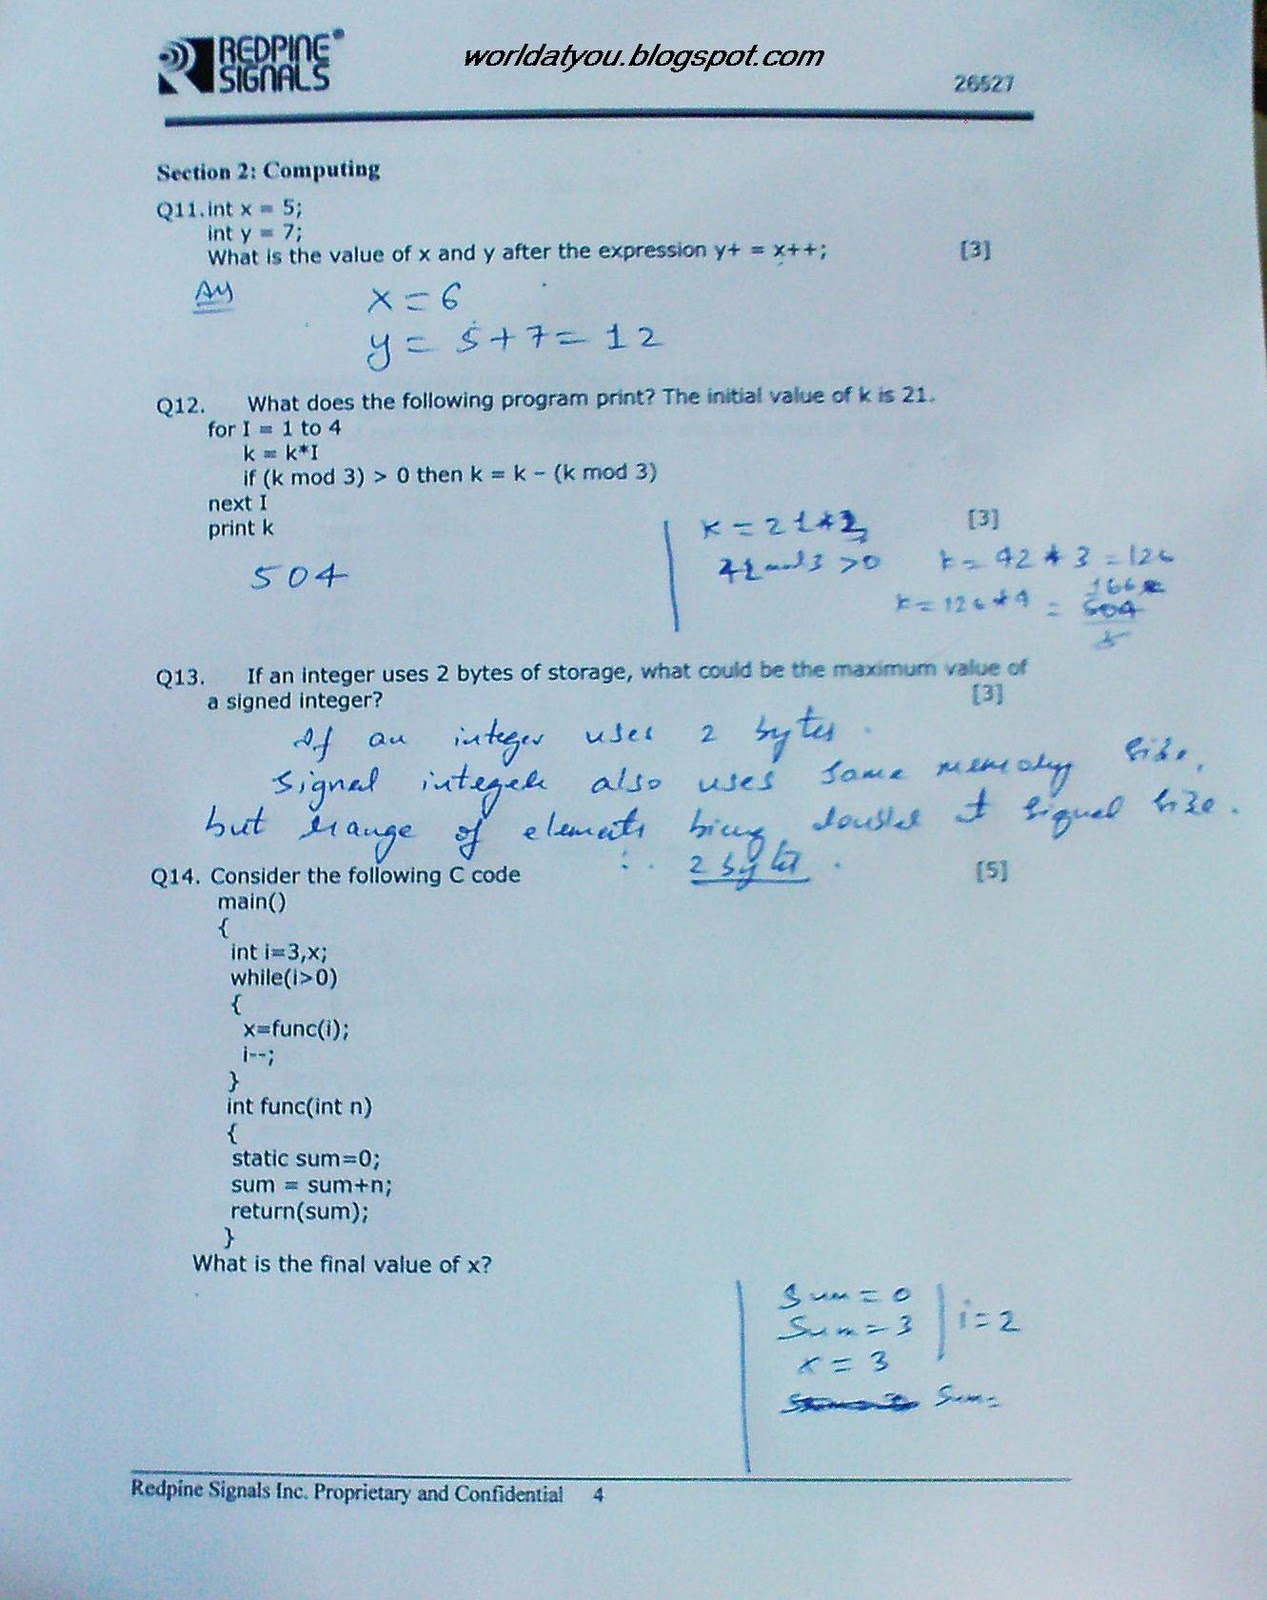 REDPINE®
SIGNALS
worldatyou.blogspot.com
26527
Section 2: Computing
Q11.int x = 5;
int y = 7;
What is the value of x and y after the expression y+ = x++; [3]
x = 6
y = 5+7= 12
Q12. What does the following program print? The initial value of k is 21.
for I = 1 to 4
k = k*I
if (k mod 3) > 0 then k = k – (k mod 3)
next I
print k [3]
504
k = 21*2
42 mod 3 >0 k = 42 * 3 = 126
k = 126*4 = 504
Q13. If an integer uses 2 bytes of storage, what could be the maximum value of
a signed integer? [3]
If an integer uses 2 bytes.
Signed integer also uses same memory size,
but range of elements being at size.
∴ 2 byte.
Q14. Consider the following C code [5]
main()
{
int i=3,x;
while(i>0)
{
x=func(i);
i--;
}
int func(int n)
{
static sum=0;
sum = sum+n;
return(sum);
}
What is the final value of x?
Sum = 0
Sum = 3 i = 2
x = 3
Sum=
Redpine Signals Inc. Proprietary and Confidential 4